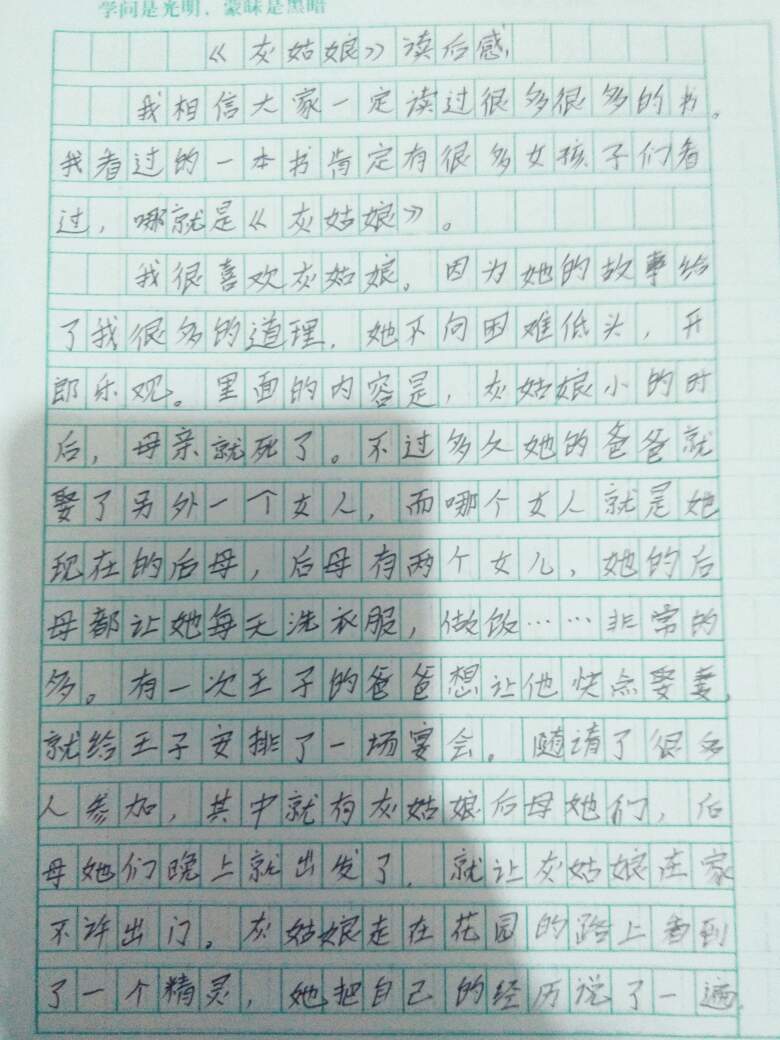 学问是光明、蒙昧是黑暗
《灰姑娘》读后感
我相信大家一定读过很多很多的书。
我看过的一本书肯定有很多女孩子们看
过，哪就是《灰姑娘》。
我很喜欢灰姑娘。因为她的故事给
了我很多的道理，她不向困难低头，开
郎乐观。里面的内容是，灰姑娘小的时
后，母亲就死了。不过多久她的爸爸就
娶了另外一个女人，而哪个女人就是她
现在的后母，后母有两个女儿，她的后
母都让她每天洗衣服，做饭……非常的
多。有一次王子的爸爸想让他快点娶妻，
就给王子安排了一场宴会。随请了很多
人参加，其中就有灰姑娘后母她们，后
母她们晚上就出发了，就让灰姑娘在家
不许出门。灰姑娘走在花园的路上看到
了一个精灵，她把自己的经历说了一遍，